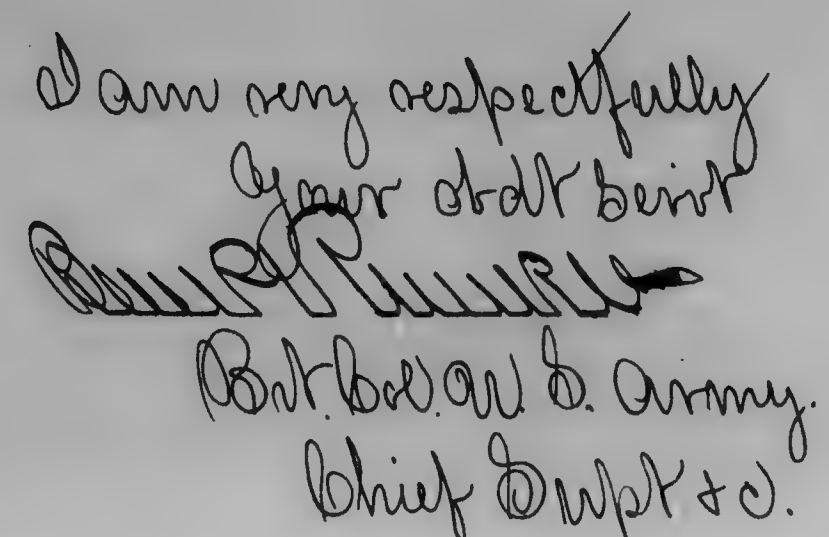 I am very respectfully
Your obdt Servt
Ben P Runkle
Bvt. Col. U. S. Army.
Chief Supt &c.